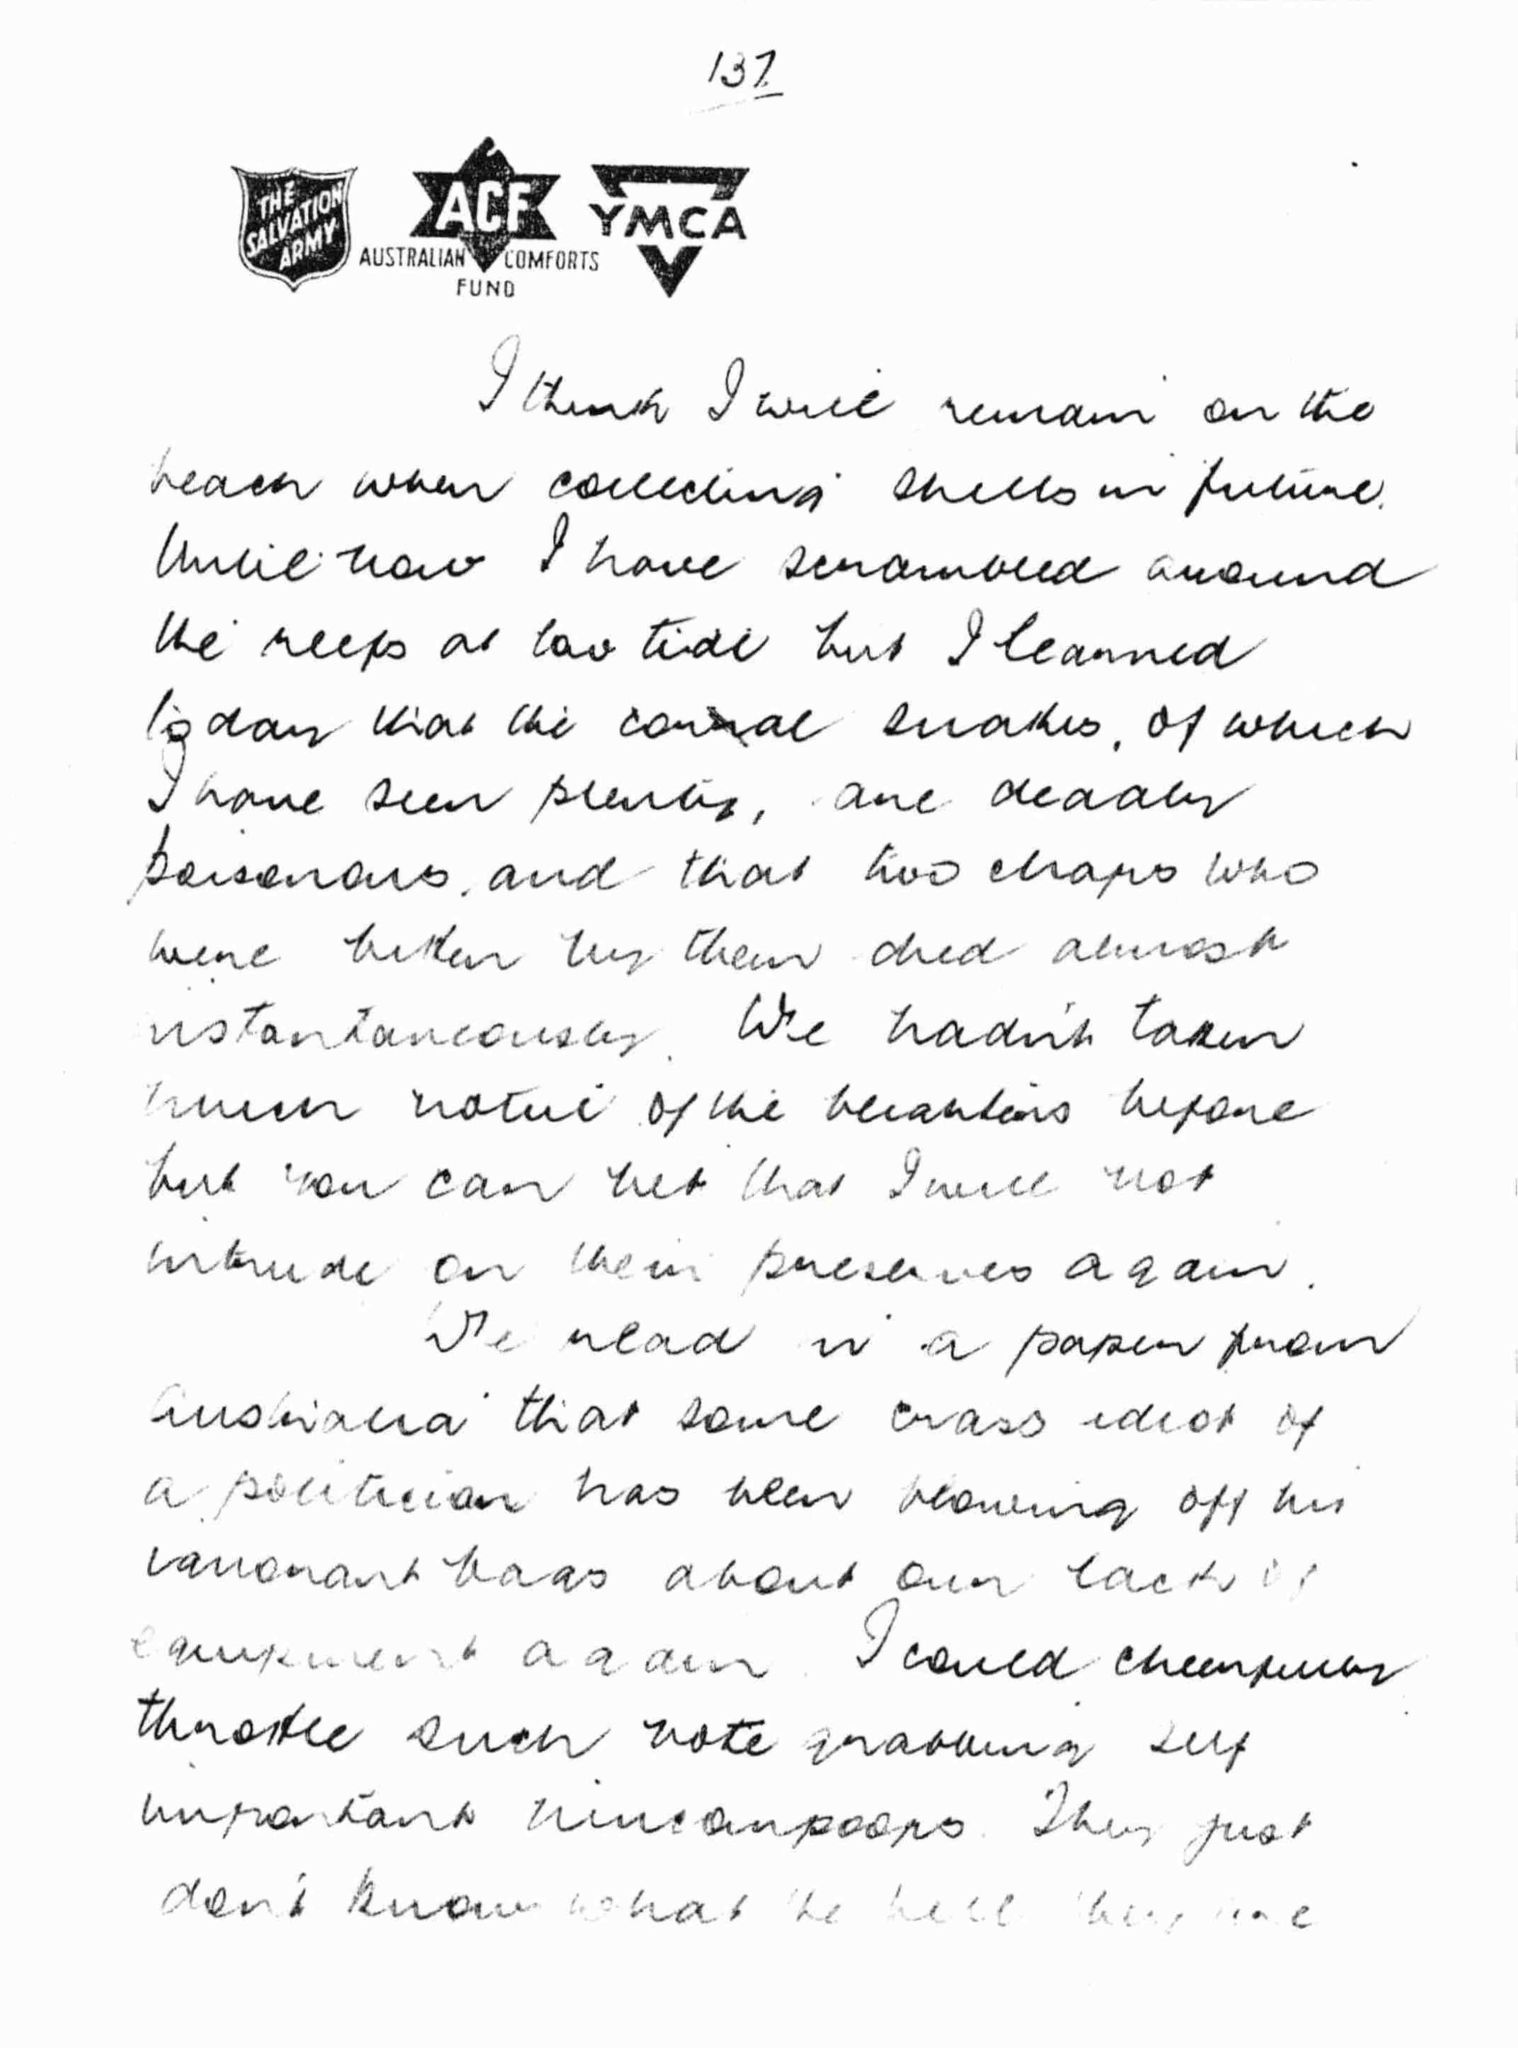 137
THE SALVATION ARMY
ACF
AUSTRALIAN COMFORTS
FUND
YMCA
I think I will remain on the
beach when collecting shells in future.
Until now I have scrambled around
the reefs at low tide but I learned
today that the coral snakes, of which
I have seen plenty, are deadly
poisonous, and that two chaps who
were bitten by them died almost
instantaneously. We hadn't taken
much notice of the beauties before
but you can bet that I will not
intrude on their preserves again.
We read in a paper from
Australia that some crass idiot of
a politician has been blowing off his
ignorant bags about our lack of
equipment again. I could cheerfully
throttle such vote grabbing self
important nincompoops. They just
don't know what the hell they are